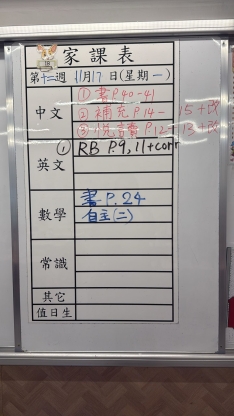 家課表
第十二週 11月17日(星期一)
中文
① 書P.40-41
② 補充P.14-15+改
③ 悅讀P.12-13+改
英文
① RB P.9, 11+corr
數學
書 P.24
自主(二)
常識
其它
值日生